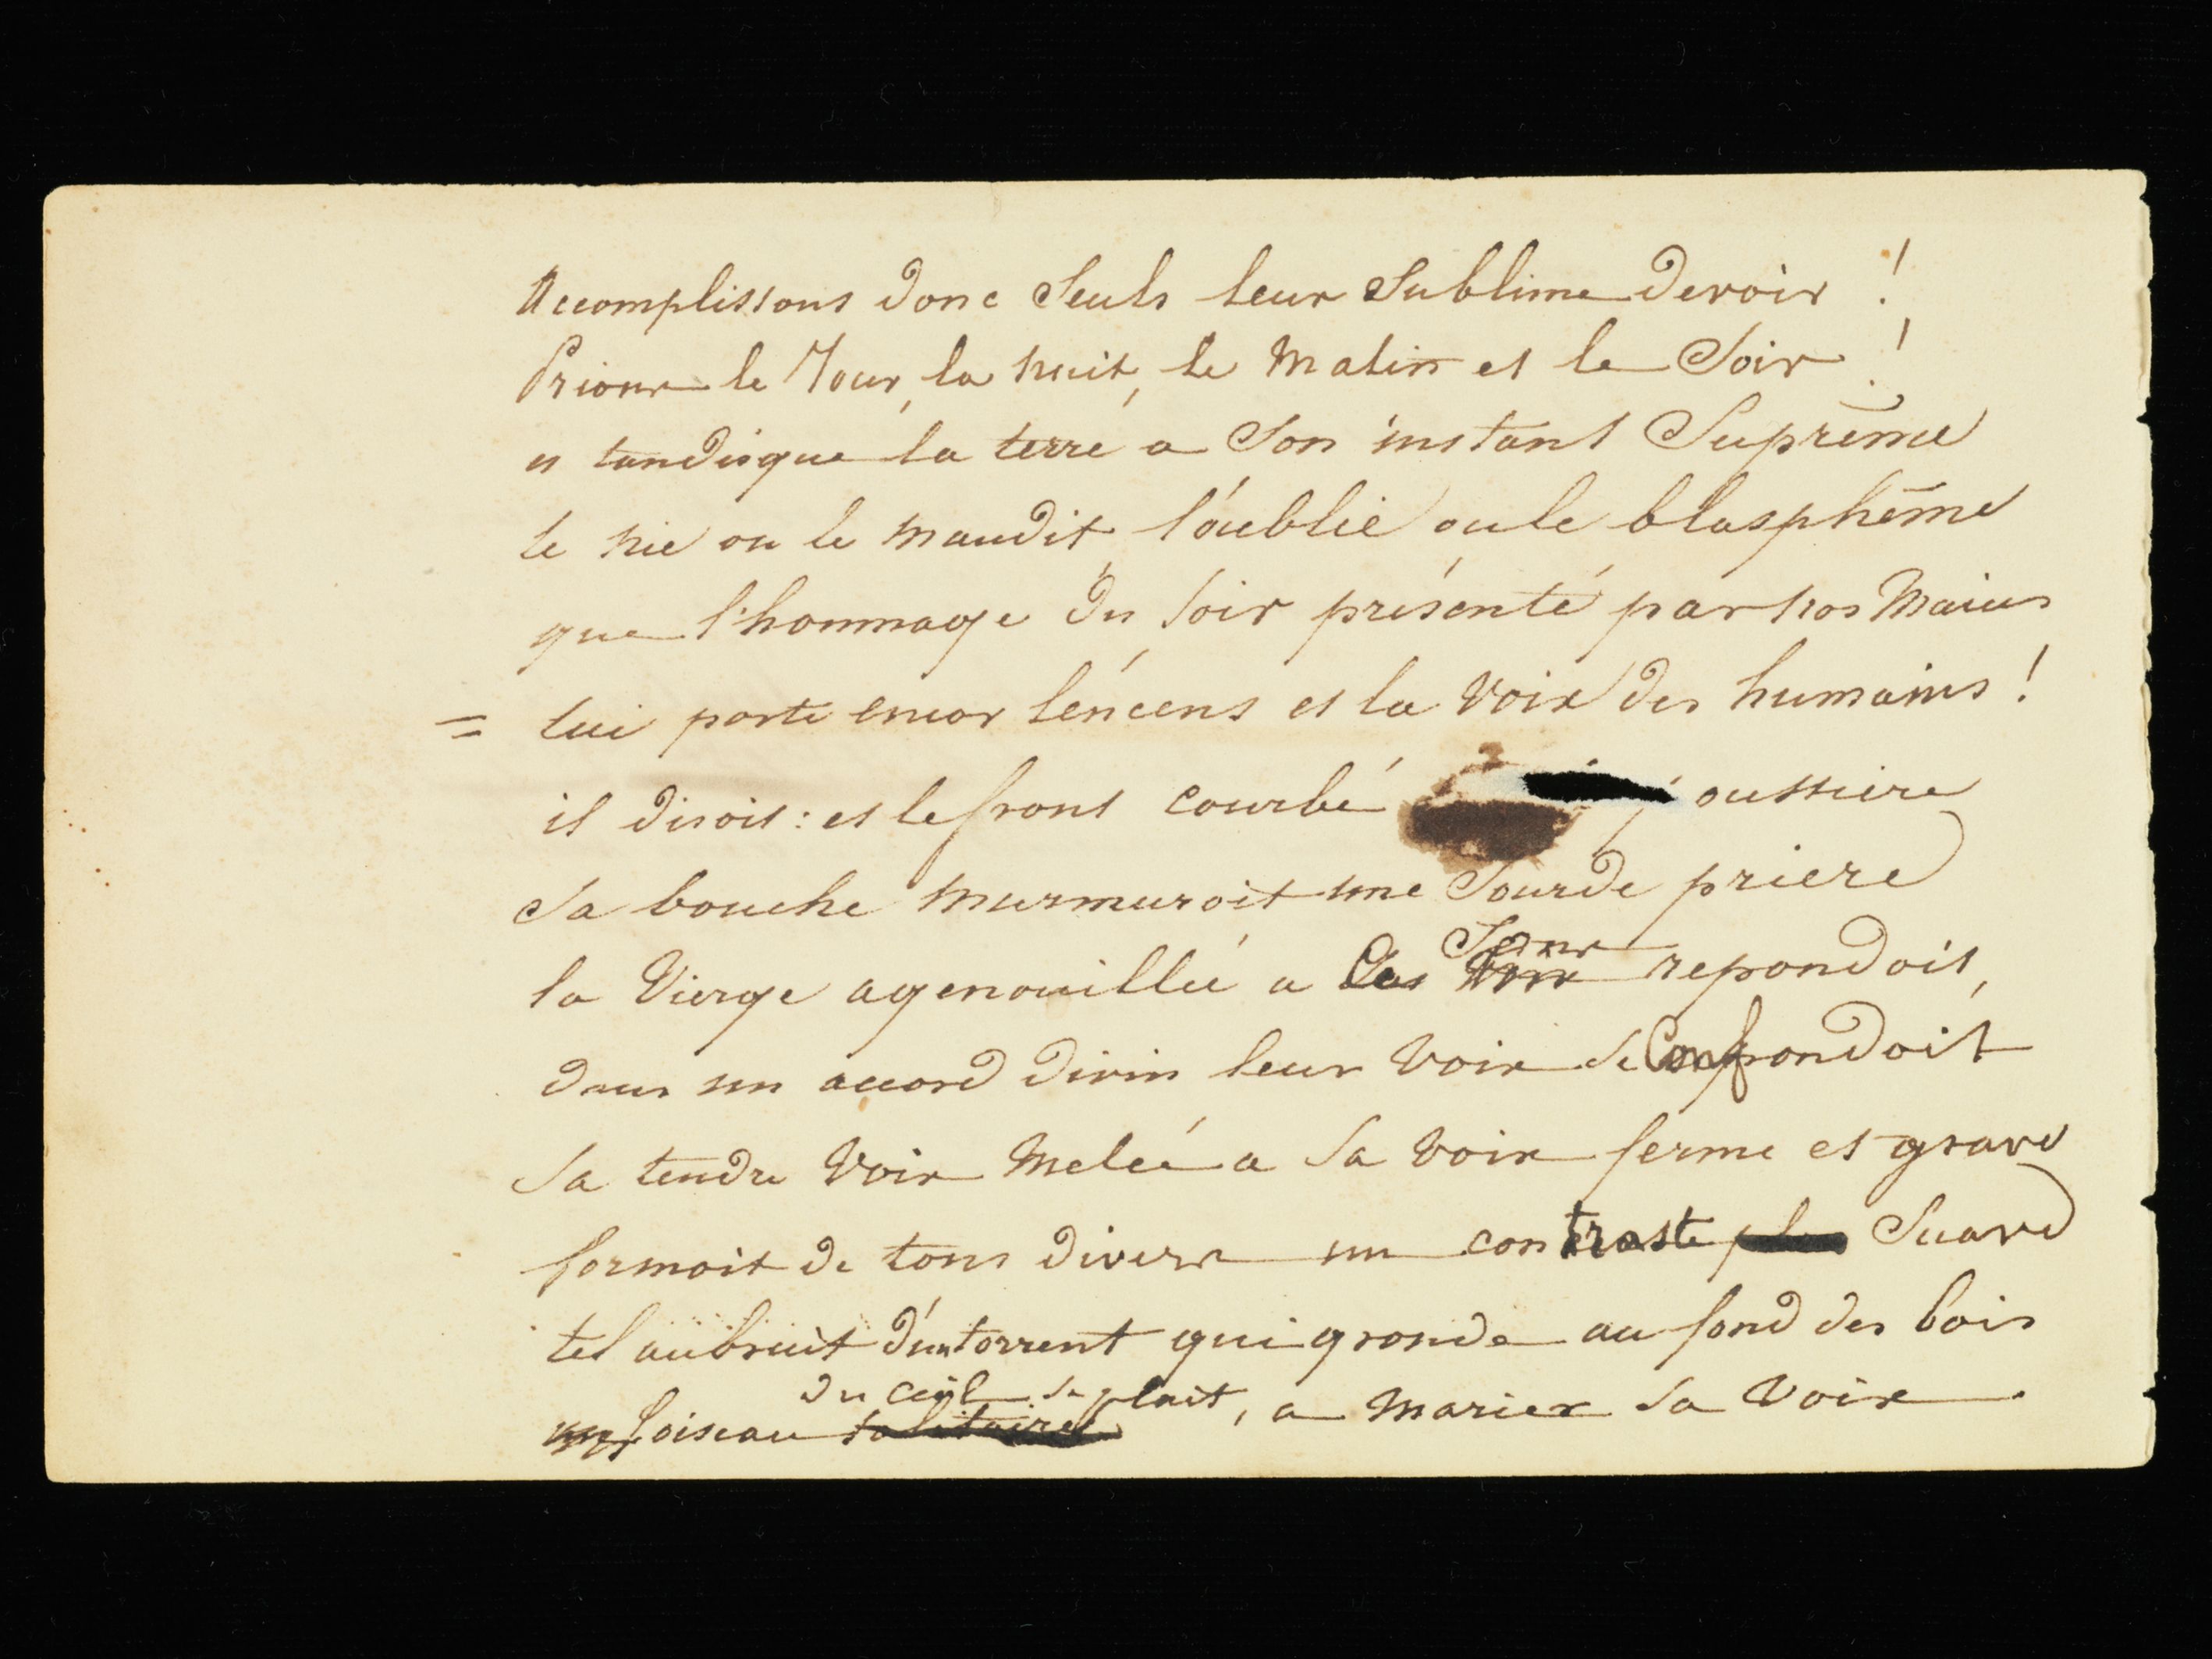 Accomplissons donc seuls leur sublime devoir !
Prions le Jour, la nuit, le matin et le Soir !
et tandisque la terre a Son instant Suprême
le nie ou le maudit, l'oublie ou le blasphême
que l'hommage du soir présenté par nos mains
= lui porte encor l'encens et la voix des humains !
il disoit : et le front courbé oussiere
sa bouche murmuroit une sourde priere
la Vierge agenouillée a Ses Sons repondoit,
dans un accord divin leur voix se Confondoit
sa tendre voix melée a sa voix ferme et grave
formoit de tons divers un contraste plus Suave
tel au bruit d'un torrent qui gronde au fond des bois
du ciel se plait, a marier sa voix
un l'oiseau solitaire